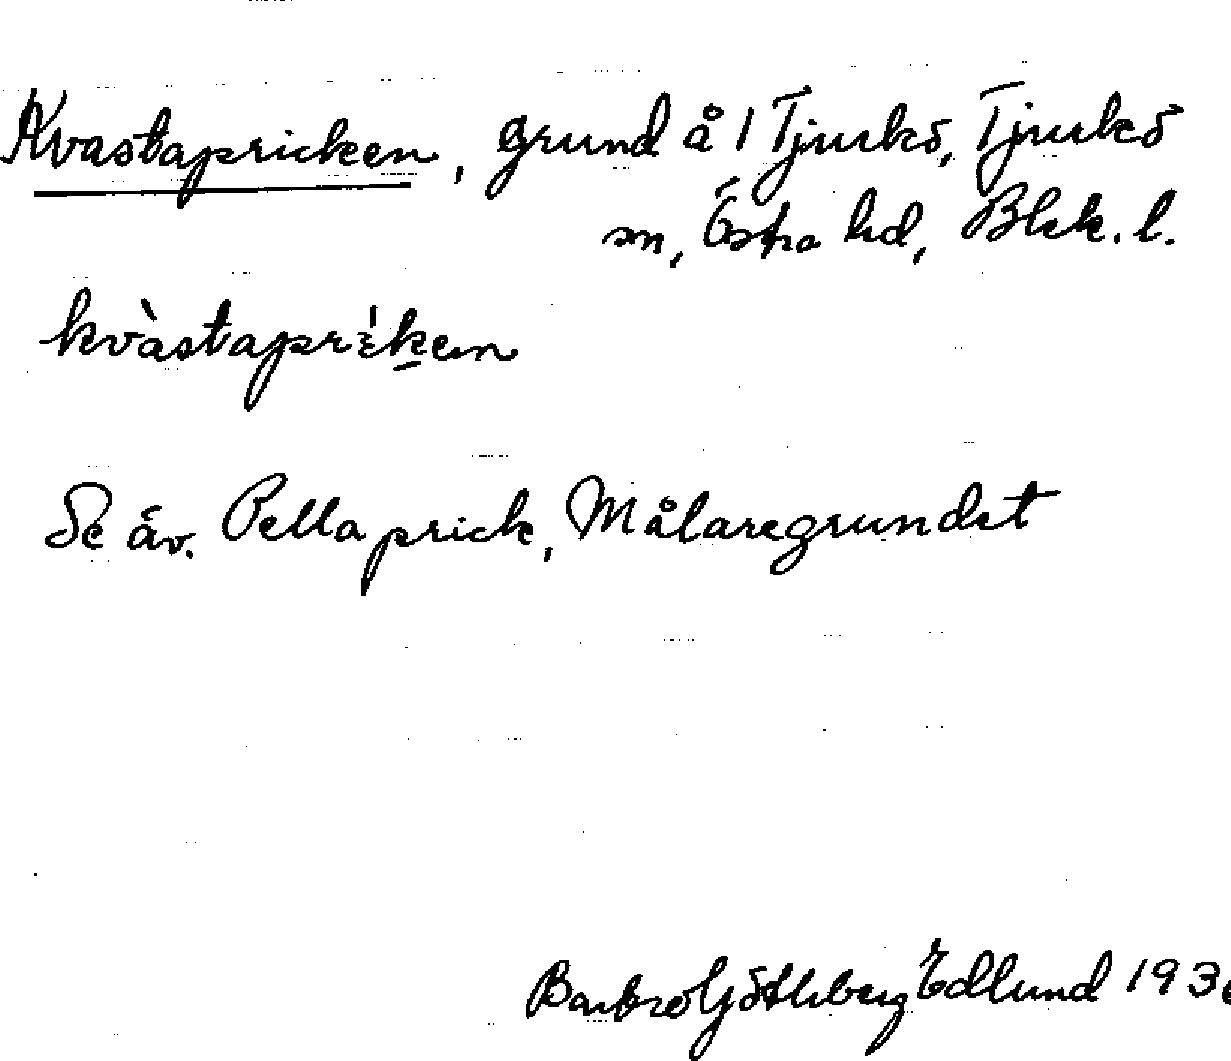 Kvastapricken, grund å 1 Tjurkö, Tjurkö
sn, Östra hd, Blek. l.
kvàstapriken
Se äv. Pellaprick, Målaregrundet
Barbro Götheberg Edlund 193